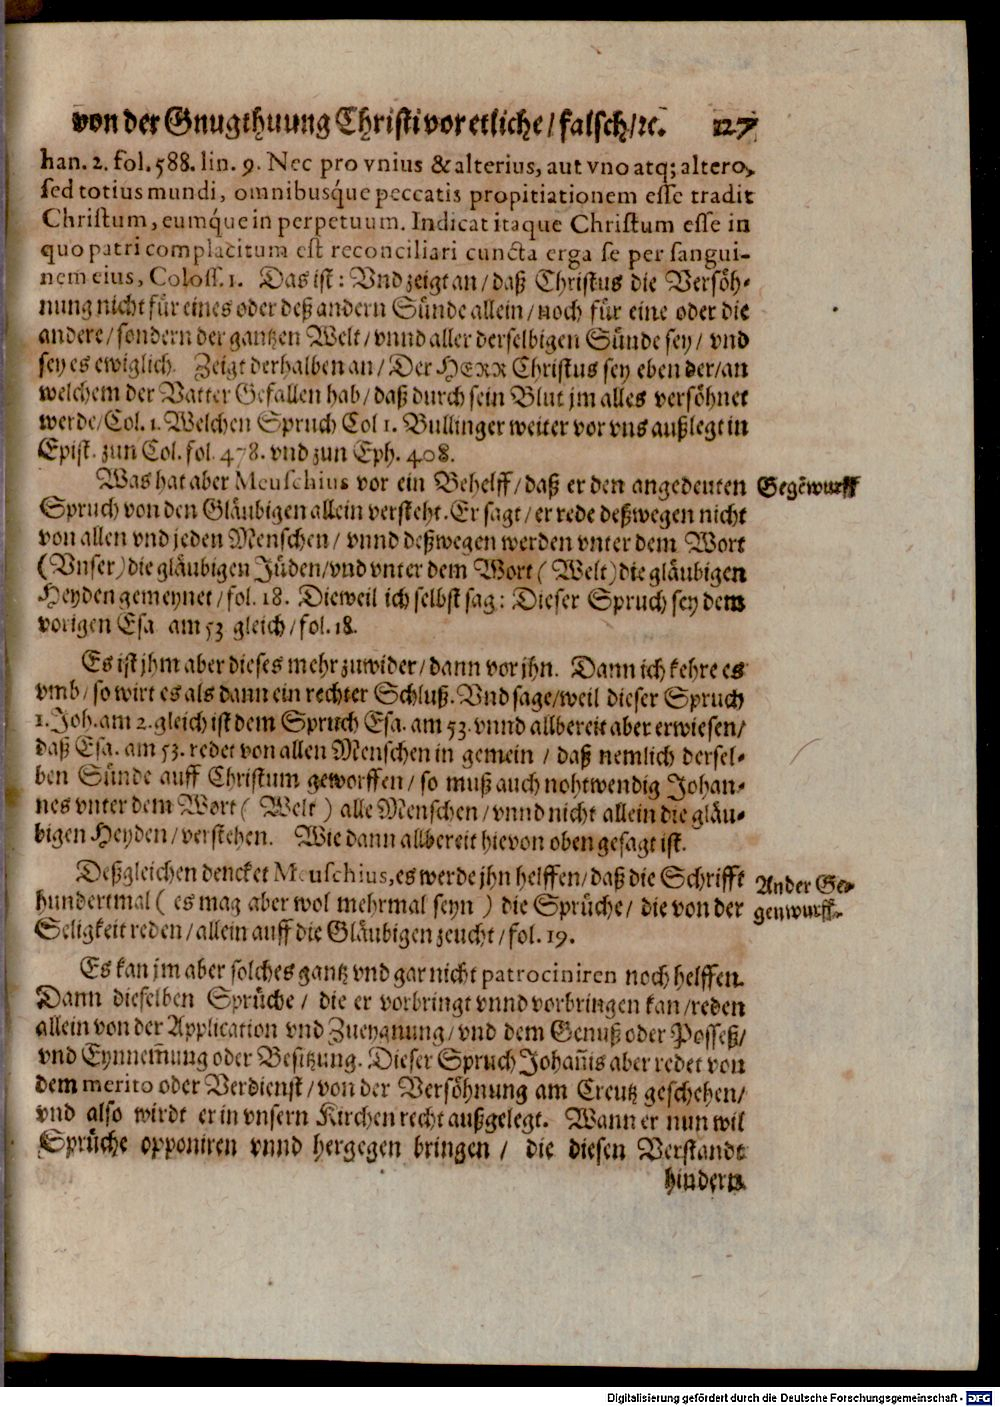 von der Gnugthuung Christi vor etliche/ falsch/ ꝛc. 127
han. 2. fol. 588. lin. 9. Nec pro vnius & alterius, aut vno atq; altero,
sed totius mundi, omnibusq́ue peccatis propitiationem esse tradit
Christum, eumq́ue in perpetuum. Indicat itaque Christum esse in
quo patri complacitum est reconciliari cuncta erga se per sangui-
nem eius, Coloss. 1. Das ist: Vnd zeigt an/ daß Christus die Versöh-
nung nicht für eines oder deß andern Sünde allein/ noch für eine oder die
andere/ sondern der gantzen Welt/ vnnd aller derselbigen Sünde sey/ vnd
sey es ewiglich. Zeigt derhalben an/ Der HERR Christus sey eben der/ an
welchem der Vatter Gefallen hab/ daß durch sein Blut jm alles versöhnet
werde/ Col. 1. Welchen Spruch Col 1. Bullinger weiter vor vns außlegt in
Epist. zun Col. fol. 478. vnd zun Eph. 408.
Was hat aber Meuschius vor ein Behelff/ daß er den angedeuten
Gegẽwurff
Spruch von den Gläubigen allein versteht. Er sagt/ er rede deßwegen nicht
von allen vnd jeden Menschen/ vnnd deßwegen werden vnter dem Wort
(Vnser) die gläubigen Jüden/ vnd vnter dem Wort (Welt) die gläubigen
Heyden gemeynet/ fol. 18. Dieweil ich selbst sag: Dieser Spruch sey dem
vorigen Esa am 53 gleich/ fol. 18.
Es ist jhm aber dieses mehr zuwider/ dann vor jhn. Dann ich kehre es
vmb/ so wirt es als dann ein rechter Schluß. Vnd sage/ weil dieser Spruch
1. Joh. am 2. gleich ist dem Spruch Esa. am 53. vnnd allbereit aber erwiesen/
daß Esa. am 53. redet von allen Menschen in gemein/ daß nemlich dersel-
ben Sünde auff Christum geworffen/ so muß auch nohtwendig Johan-
nes vnter dem Wort (Welt) alle Menschen/ vnnd nicht allein die gläu-
bigen Heyden/ verstehen. Wie dann allbereit hievon oben gesagt ist.
Deßgleichen dencket Meuschius, es werde jhn helffen/ daß die Schrifft
Ander Ge-
hundertmal (es mag aber wol mehrmal seyn) die Sprüche/ die von der
genwurff.
Seligkeit reden/ allein auff die Gläubigen zeucht/ fol. 19.
Es kan jm aber solches gantz vnd gar nicht patrociniren noch helffen.
Dann dieselben Sprüche/ die er vorbringt vnnd vorbringen kan/ reden
allein von der Application vnd Zueygnung/ vnd dem Genuß oder Posseß/
vnd Eynnem̃ung oder Besitzung. Dieser Spruch Johañis aber redet von
dem merito oder Verdienst/ von der Versöhnung am Creutz geschehen/
vnd also wirdt er in vnsern Kirchen recht außgelegt. Wann er nun wil
Sprüche opponiren vnnd hergegen bringen/ die diesen Verstandt
hindern
Digitalisierung gefördert durch die Deutsche Forschungsgemeinschaft - DFG